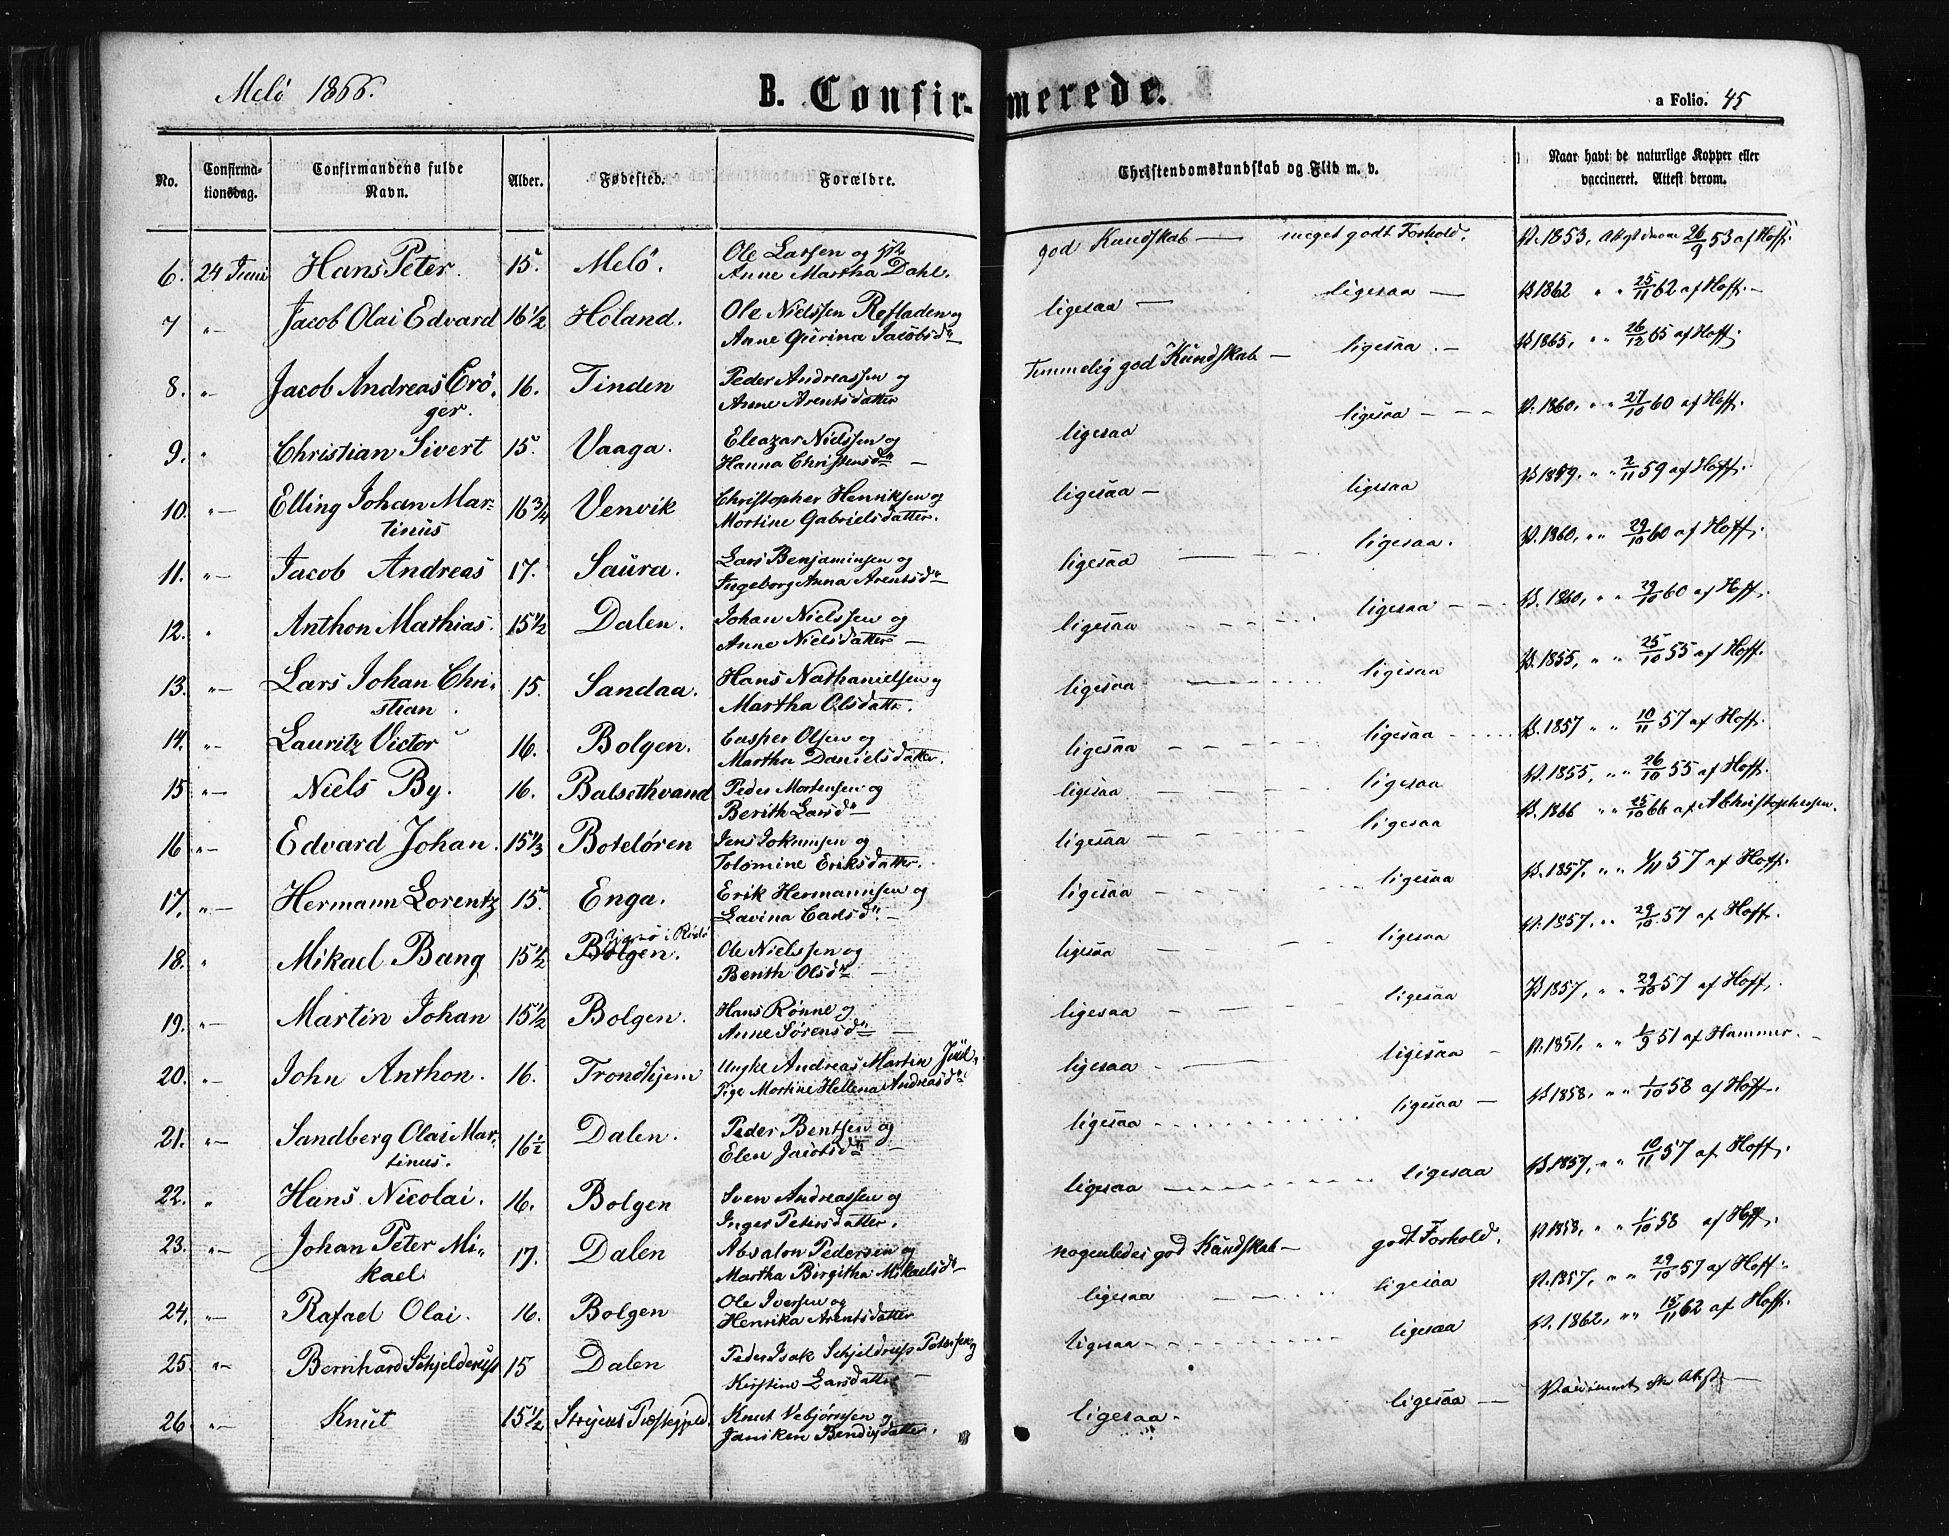 Melö 1866.
B. Confirmerede.
a Folio. 45
No.
Confirmationsdag.
Confirmandens fulde Navn.
Alder.
Fødested.
Forældre.
Christendomskundskab og Flid m. v.
Naar havt de naturlige Kopper eller vaccineret. Attest derom.
6. 24 Juni Hans Peter. 15. Melö. Ole Larsen og
Anne Martha Dahl. god Kundskab — meget godt Forhold. V. 1853, Attest derom 26/9 53 af Hoff.
7 „ Jacob Olai Edvard 16 1/2 Holand. Ole Nielssen Refladen og
Anne Gurina Jacobsd. ligesaa — ligesaa — V. 1862 „ „ 25/11 62 af Hoff.
8. „ Jacob Andreas Crö-
ger. 16. Tinden Peder Andreassen og
Anne Arentsdatter Temmelig god Kundskab — ligesaa. — V. 1865, „ „ 26/12 65 af Hoff.
9. „ Christian Sivert 15. Vaaga. Eleazar Nielssen og
Hanna Christensd. — ligesaa ligesaa — V. 1860, „ „ 27/10 60 af Hoff.
10. „ Elling Johan Mar-
tinus 16 3/4 Venvik Christopher Henriksen og
Mortine Gabrielsdatter. ligesaa — ligesaa V. 1859. „ „ 2/11 59 af Hoff.
11. „ Jacob Andreas 17. Saura. Lars Benjaminsen og
Ingeborg Anna Arentsd. ligesaa — ligesaa. V. 1860, „ „ 29/10 60 af Hoff.
12. „ Anthon Mathias. 15 1/2 Dalen. Johan Nielssen og
Anne Nielsdatter — ligesaa ligesaa V. 1860, „ „ 29/10 60 af Hoff.
13. „ Lars Johan Chri-
stian. 15. Sandaa. Hans Nathanielsen og
Martha Olsdatter. ligesaa ligesaa V. 1855, „ „ 25/10 55 af Hoff.
14. „ Lauritz Victor 16. Bolgen. Casper Olsen og
Martha Danielsdatter. ligesaa ligesaa V. 1857 „ „ 10/11 57 af Hoff.
15 „ Niels By. 16. Balsethvand Peder Mortensen og
Berith Larsd. ligesaa ligesaa V. 1855, „ „ 26/10 55 af Hoff.
16 „ Edvard Johan. 15 1/3 Botelören Jens Jokumsen og
Tolomine Eriksdatter. ligesaa ligesaa V. 1866 „ „ 25/10 66 af A Christophersen.
17. „ Hermann Lorentz 15. Enga. Erik Hermannsen og
Lavina Carlsd. — ligesaa ligesaa V. 1857, „ „ 1/11 57 af Hoff.
18. „ Mikael Bang 15 1/2 Bolgen. i Rödö Ole Nielssen og
Berith Olsd. — ligesaa ligesaa V. 1857. „ „ 29/10 57 af Hoff.
19. „ Martin Johan 15 1/2 Bolgen. Hans Rönne og
Anne Sörensd. — ligesaa ligesaa V. 1857, „ „ 29/10 57 af Hoff.
20. „ John Anthon. 16. Trondhjem Ungke Andreas Martin
Pige Martine Hellena Andreasd. ligesaa ligesaa — V. 1851, „ „ 1/9 51 af Hammer. —
21. „ Sandberg Olai Mar-
tinus. 16 1/2 Dalen. Peder Bentsen og
Elen Jacobsd. ligesaa ligesaa — V. 1858, „ „ 1/10 58 af Hoff.
22. „ Hans Nicolai. 16. Bolgen Sven Andreassen og
Inger Petersdatter. ligesaa ligesaa V. 1857, „ „ 10/11 57 af Hoff.
23. „ Johan Peter Mi-
kael 17. Dalen Absalon Pedersen og
Martha Birgitha Mikaelsd. nogenledes god Kundskab — godt Forhold. V. 1858, „ „ 1/10 58 af Hoff.
24. „ Rafael Olai. 16. Bolgen Ole Iversen og
Henrika Arentsdatter ligesaa ligesaa V. 1857, „ „ 29/10 57 af Hoff.
25. „ Bernhard Schjelderup 15 Dalen Peder Isak Schjeldrup Petersen og
Kirstine Larsdatter — ligesaa ligesaa V. 1862, „ „ 15/11 62 af Hoff.
26 „ Knut 15 1/2 Knut Vebjörnsen og
Janiken Bendixdatter. ligesaa. ligesaa —